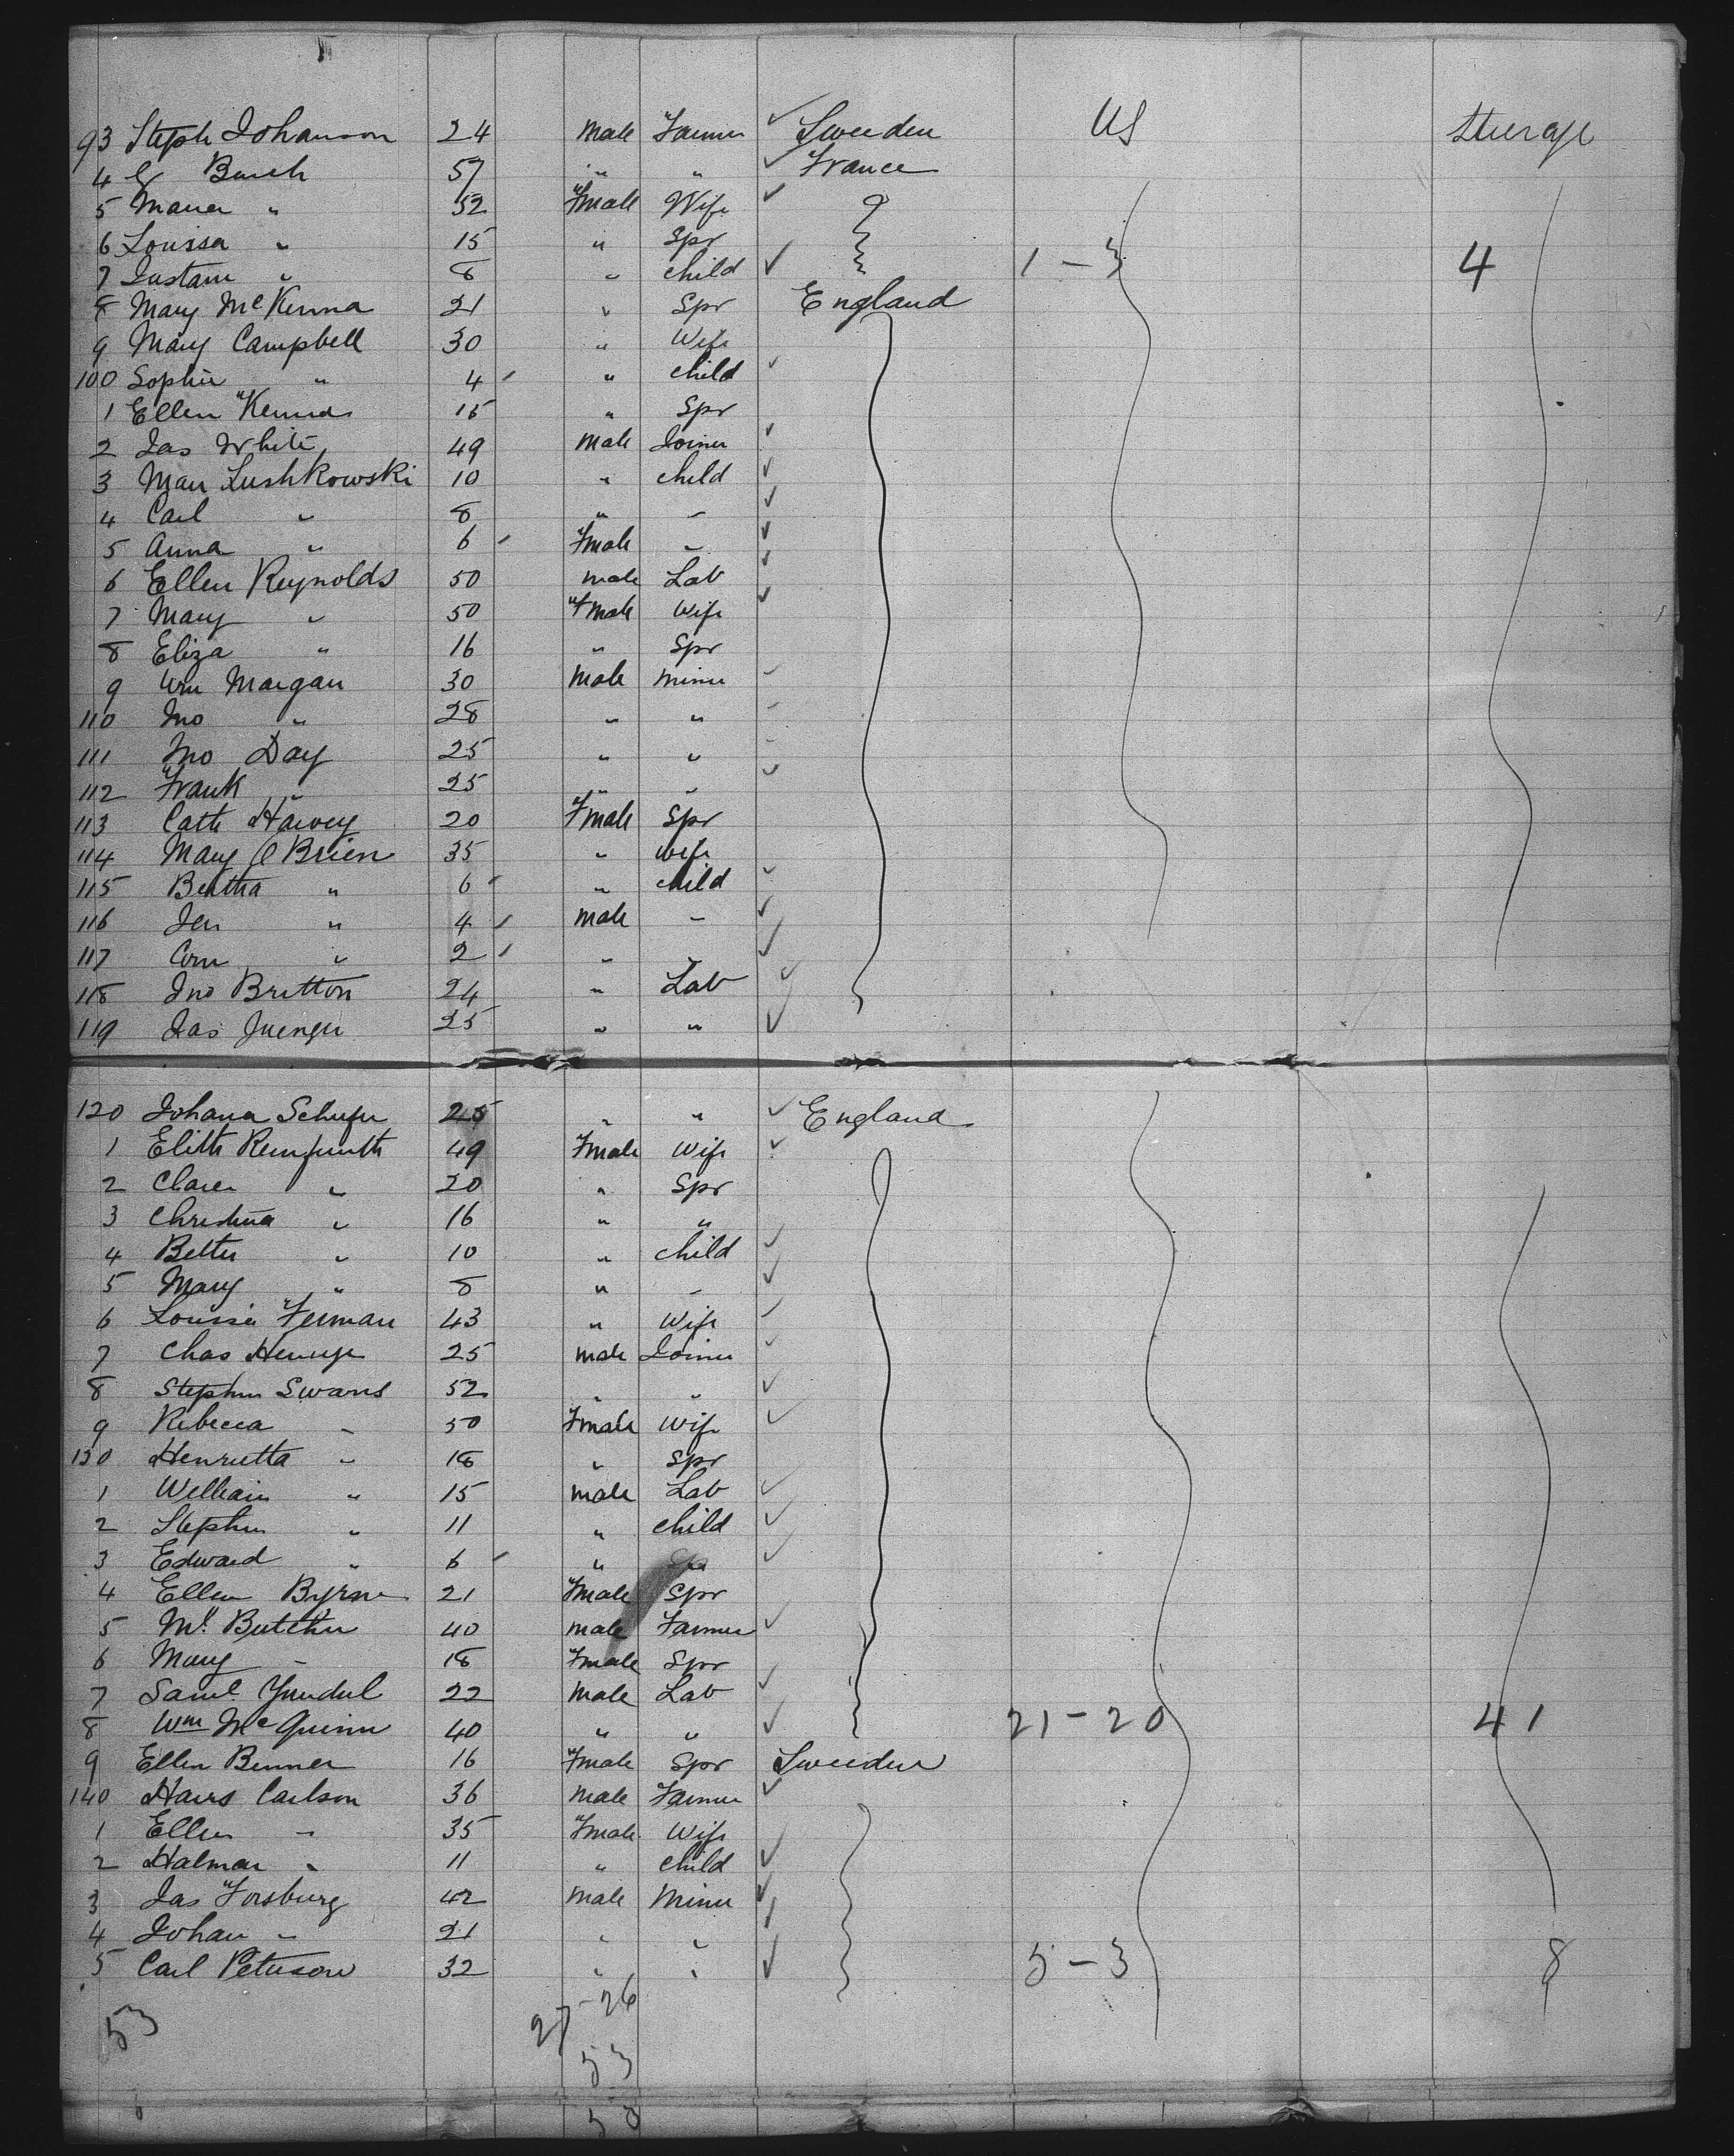 93 Steph Johanson 24 male Farmer ✓ Sweeden US Steerage
4 G Busch 57 " " ✓ France
5 Maria " 52 Fmale Wife ✓
6 Louisa " 15 " Spr
7 Gustave " 8 " child ✓ 1-3 4
8 Mary McKenna 21 " Spr England
9 Mary Campbell 30 " Wife
100 Sophie " 4 " child ✓
1 Ellen Kenna 15 " Spr
2 Jas White 49 male Joiner ✓
3 Max Lushkowski 10 " child ✓
4 Carl " 8 " " ✓
5 Anna " 6 Fmale " ✓
6 Ellen Reynolds 50 male Lab ✓
7 Mary " 50 Fmale Wife ✓
8 Eliza " 16 " Spr
9 Wm Morgan 30 Male Miner ✓
110 Jno " 28 " "
111 Jno Day 25 " "
112 Frank " 25 " " ✓
113 Cath Harvey 20 Fmale Spr
114 Mary O Brien 35 " wife
115 Bertha " 6 " child ✓
116 Jer " 4 male " ✓
117 Corn " 2 " " ✓
118 Jno Britton 24 " Lab ✓
119 Jas 25 " " ✓
120 Johana 25 " " ✓ England
1 49 Fmale Wife ✓
2 Clara " 20 " Spr
3 Christina " 16 " "
4 " 10 " child ✓
5 Mary " 8 " " ✓
6 Louisa Ferman 43 " Wife
7 Chas 25 male Joiner ✓
8 Stephen Swans 52 " " ✓
9 Rebecca " 50 Fmale Wife ✓
130 Henrietta " 18 " Spr
1 William " 15 male Lab ✓
2 Stephen " 11 " child ✓
3 Edward " 6 " ✓
4 Ellen Byrne 21 Fmale Spr
5 Butcher 40 male Farmer ✓
6 Mary " 18 Fmale Spr
7 Saml 22 male Lab ✓
8 Wm McGuinn 40 " " ✓ 21-20 41
9 Ellen Benner 16 Fmale Spr Sweeden
140 Hans Carlson 36 Male Farmer ✓
1 Ellen " 35 Fmale Wife
2 Halmar " 11 " child ✓
3 Jas Forsburg 42 Male Miner ✓
4 Johan " 21 " "
5 Carl Peterson 32 " " ✓ 5-3 8
53 27-26
53
53